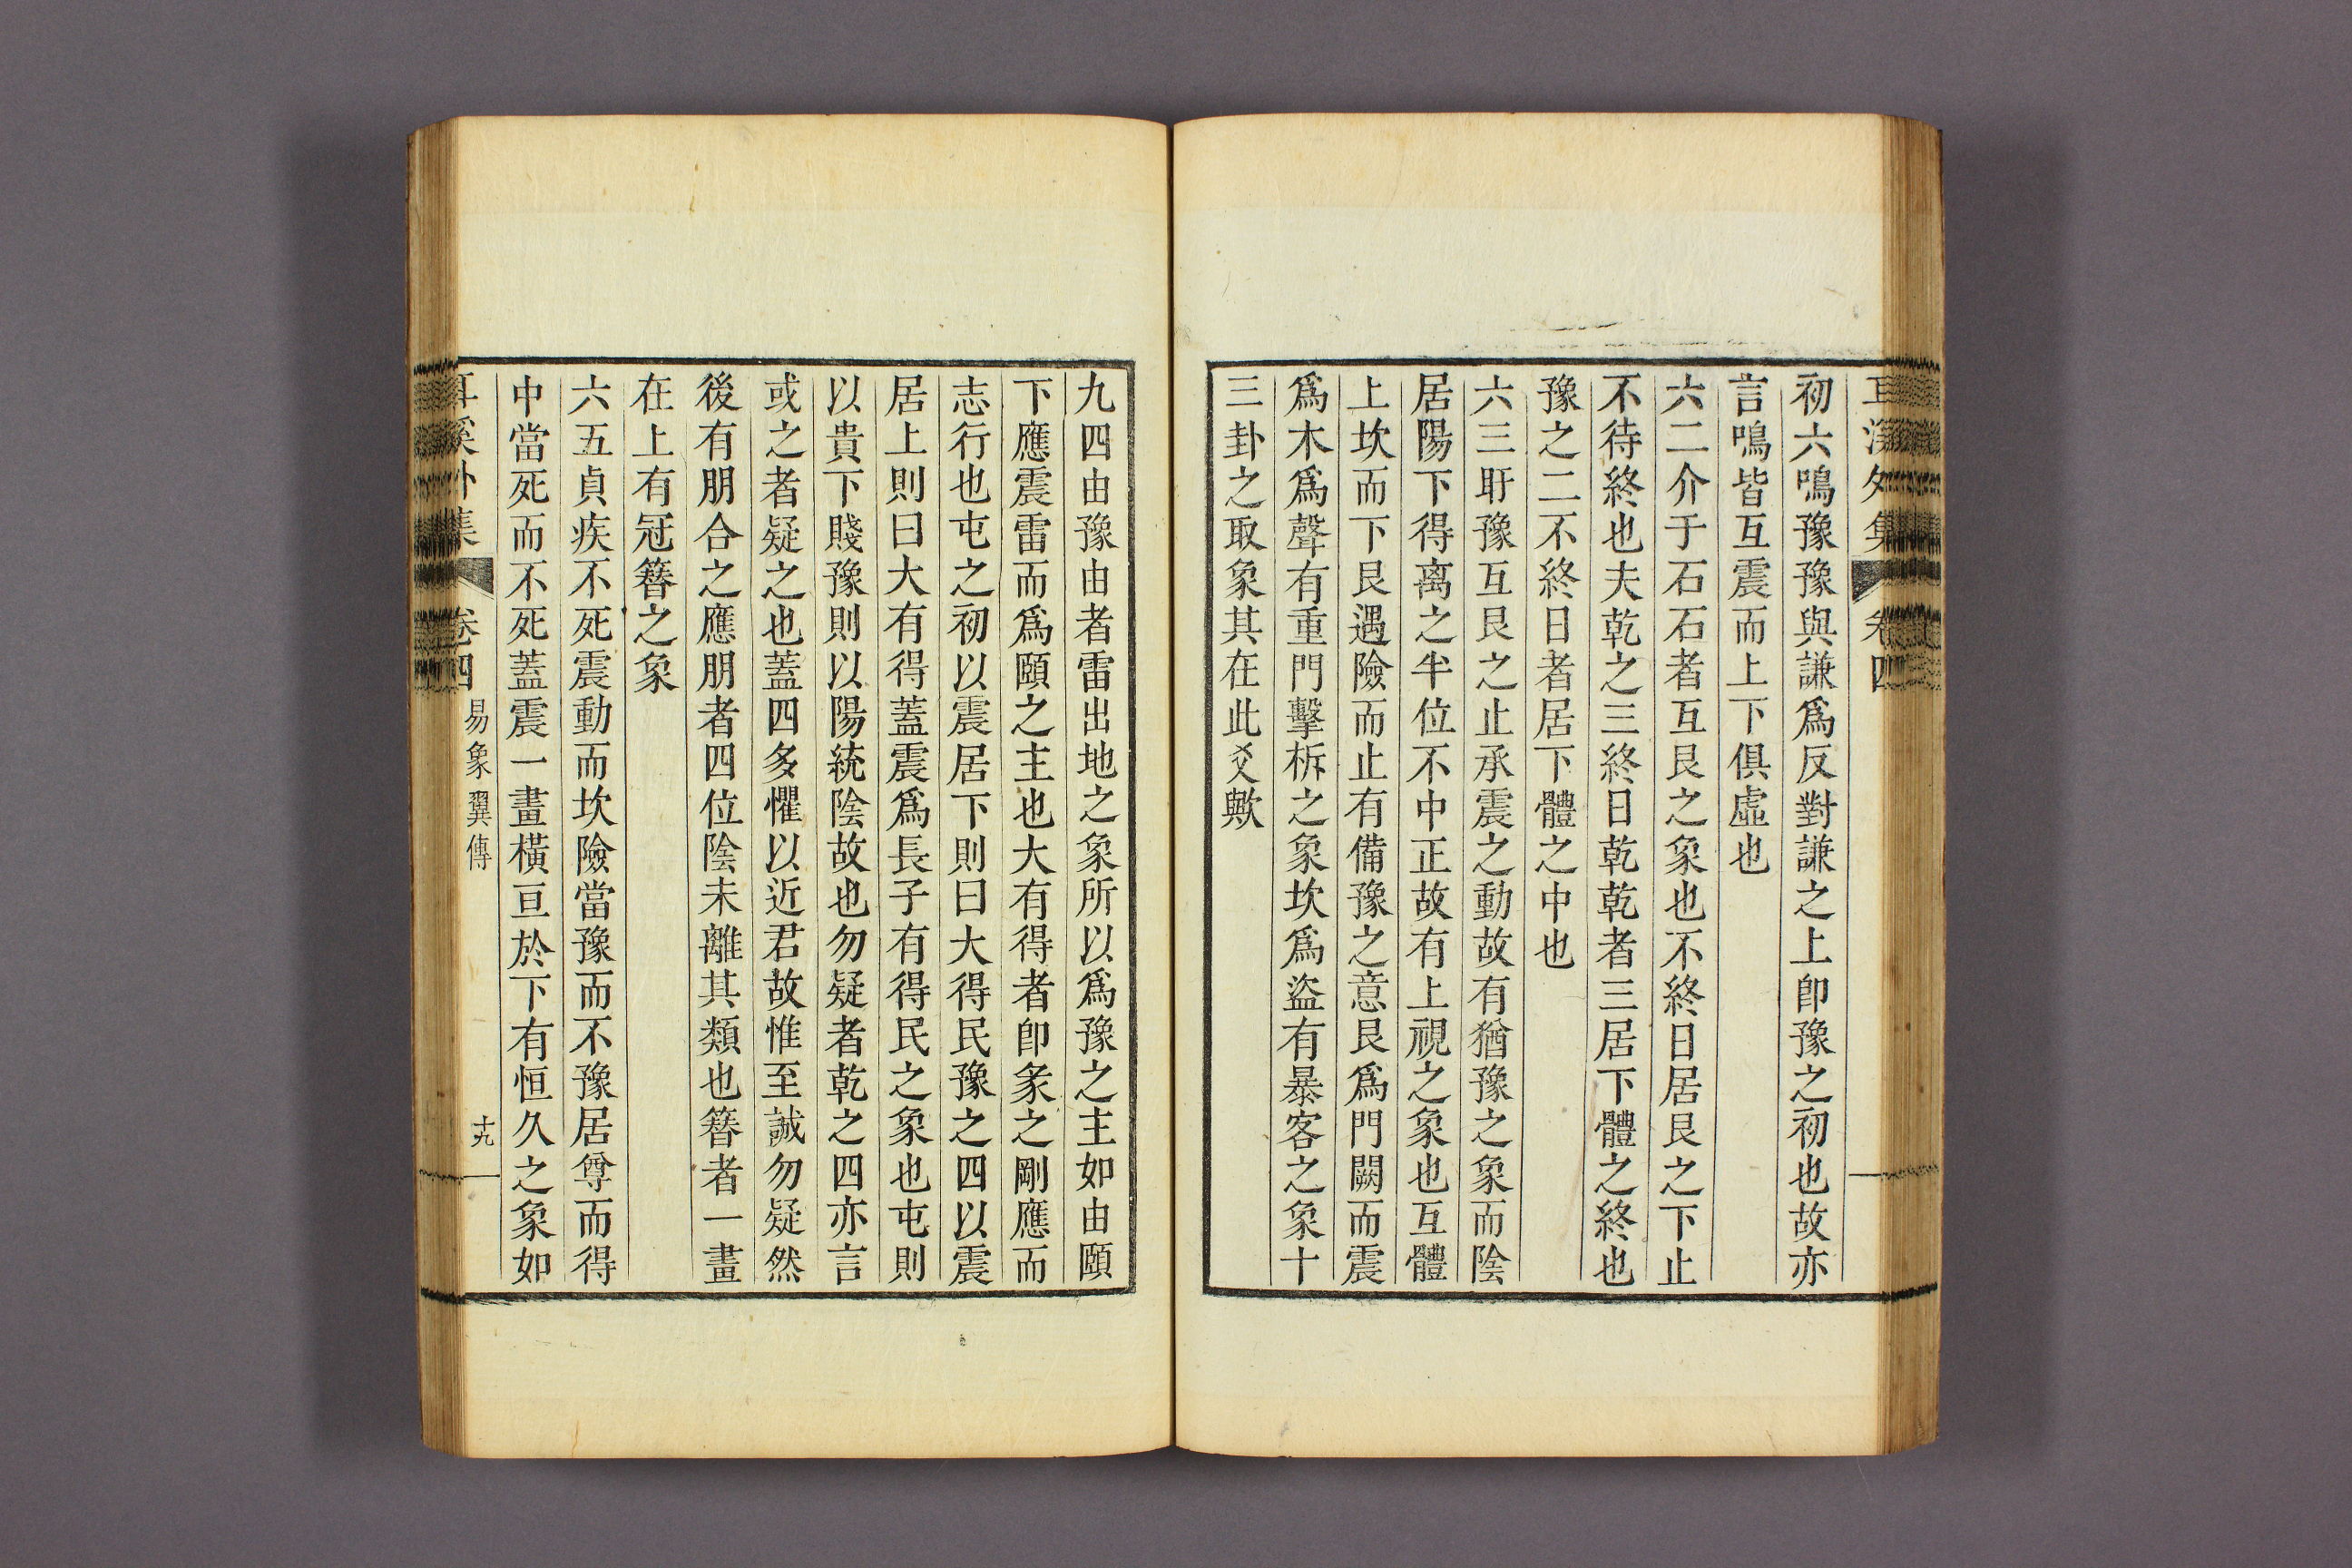 耳溪外集 卷四
初六鳴豫豫與謙爲反對謙之上卽豫之初也故亦
言鳴皆互震而上下俱虛也
六二介于石石者互艮之象也不終日居艮之下止
不待終也夫乾之三終日乾乾者三居下體之終也
豫之二不終日者居下體之中也
六三盱豫互艮之止承震之動故有猶豫之象而陰
居陽下得离之半位不中正故有上視之象也互體
上坎而下艮遇險而止有備豫之意艮爲門闕而震
爲木爲聲有重門擊柝之象坎爲盜有暴客之象十
三卦之取象其在此爻歟
九四由豫由者雷出地之象所以爲豫之主如由頤
下應震雷而爲頤之主也大有得者卽彖之剛應而
志行也屯之初以震居下則曰大得民豫之四以震
居上則曰大有得蓋震爲長子有得民之象也屯則
以貴下賤豫則以陽統陰故也勿疑者乾之四亦言
或之者疑之也蓋四多懼以近君故惟至誠勿疑然
後有朋合之應朋者四位陰未離其類也簪者一畫
在上有冠簪之象
六五貞疾不死震動而坎險當豫而不豫居尊而得
中當死而不死蓋震一畫橫亘於下有恒久之象如
耳溪外集 卷四 易象翼傳 十九